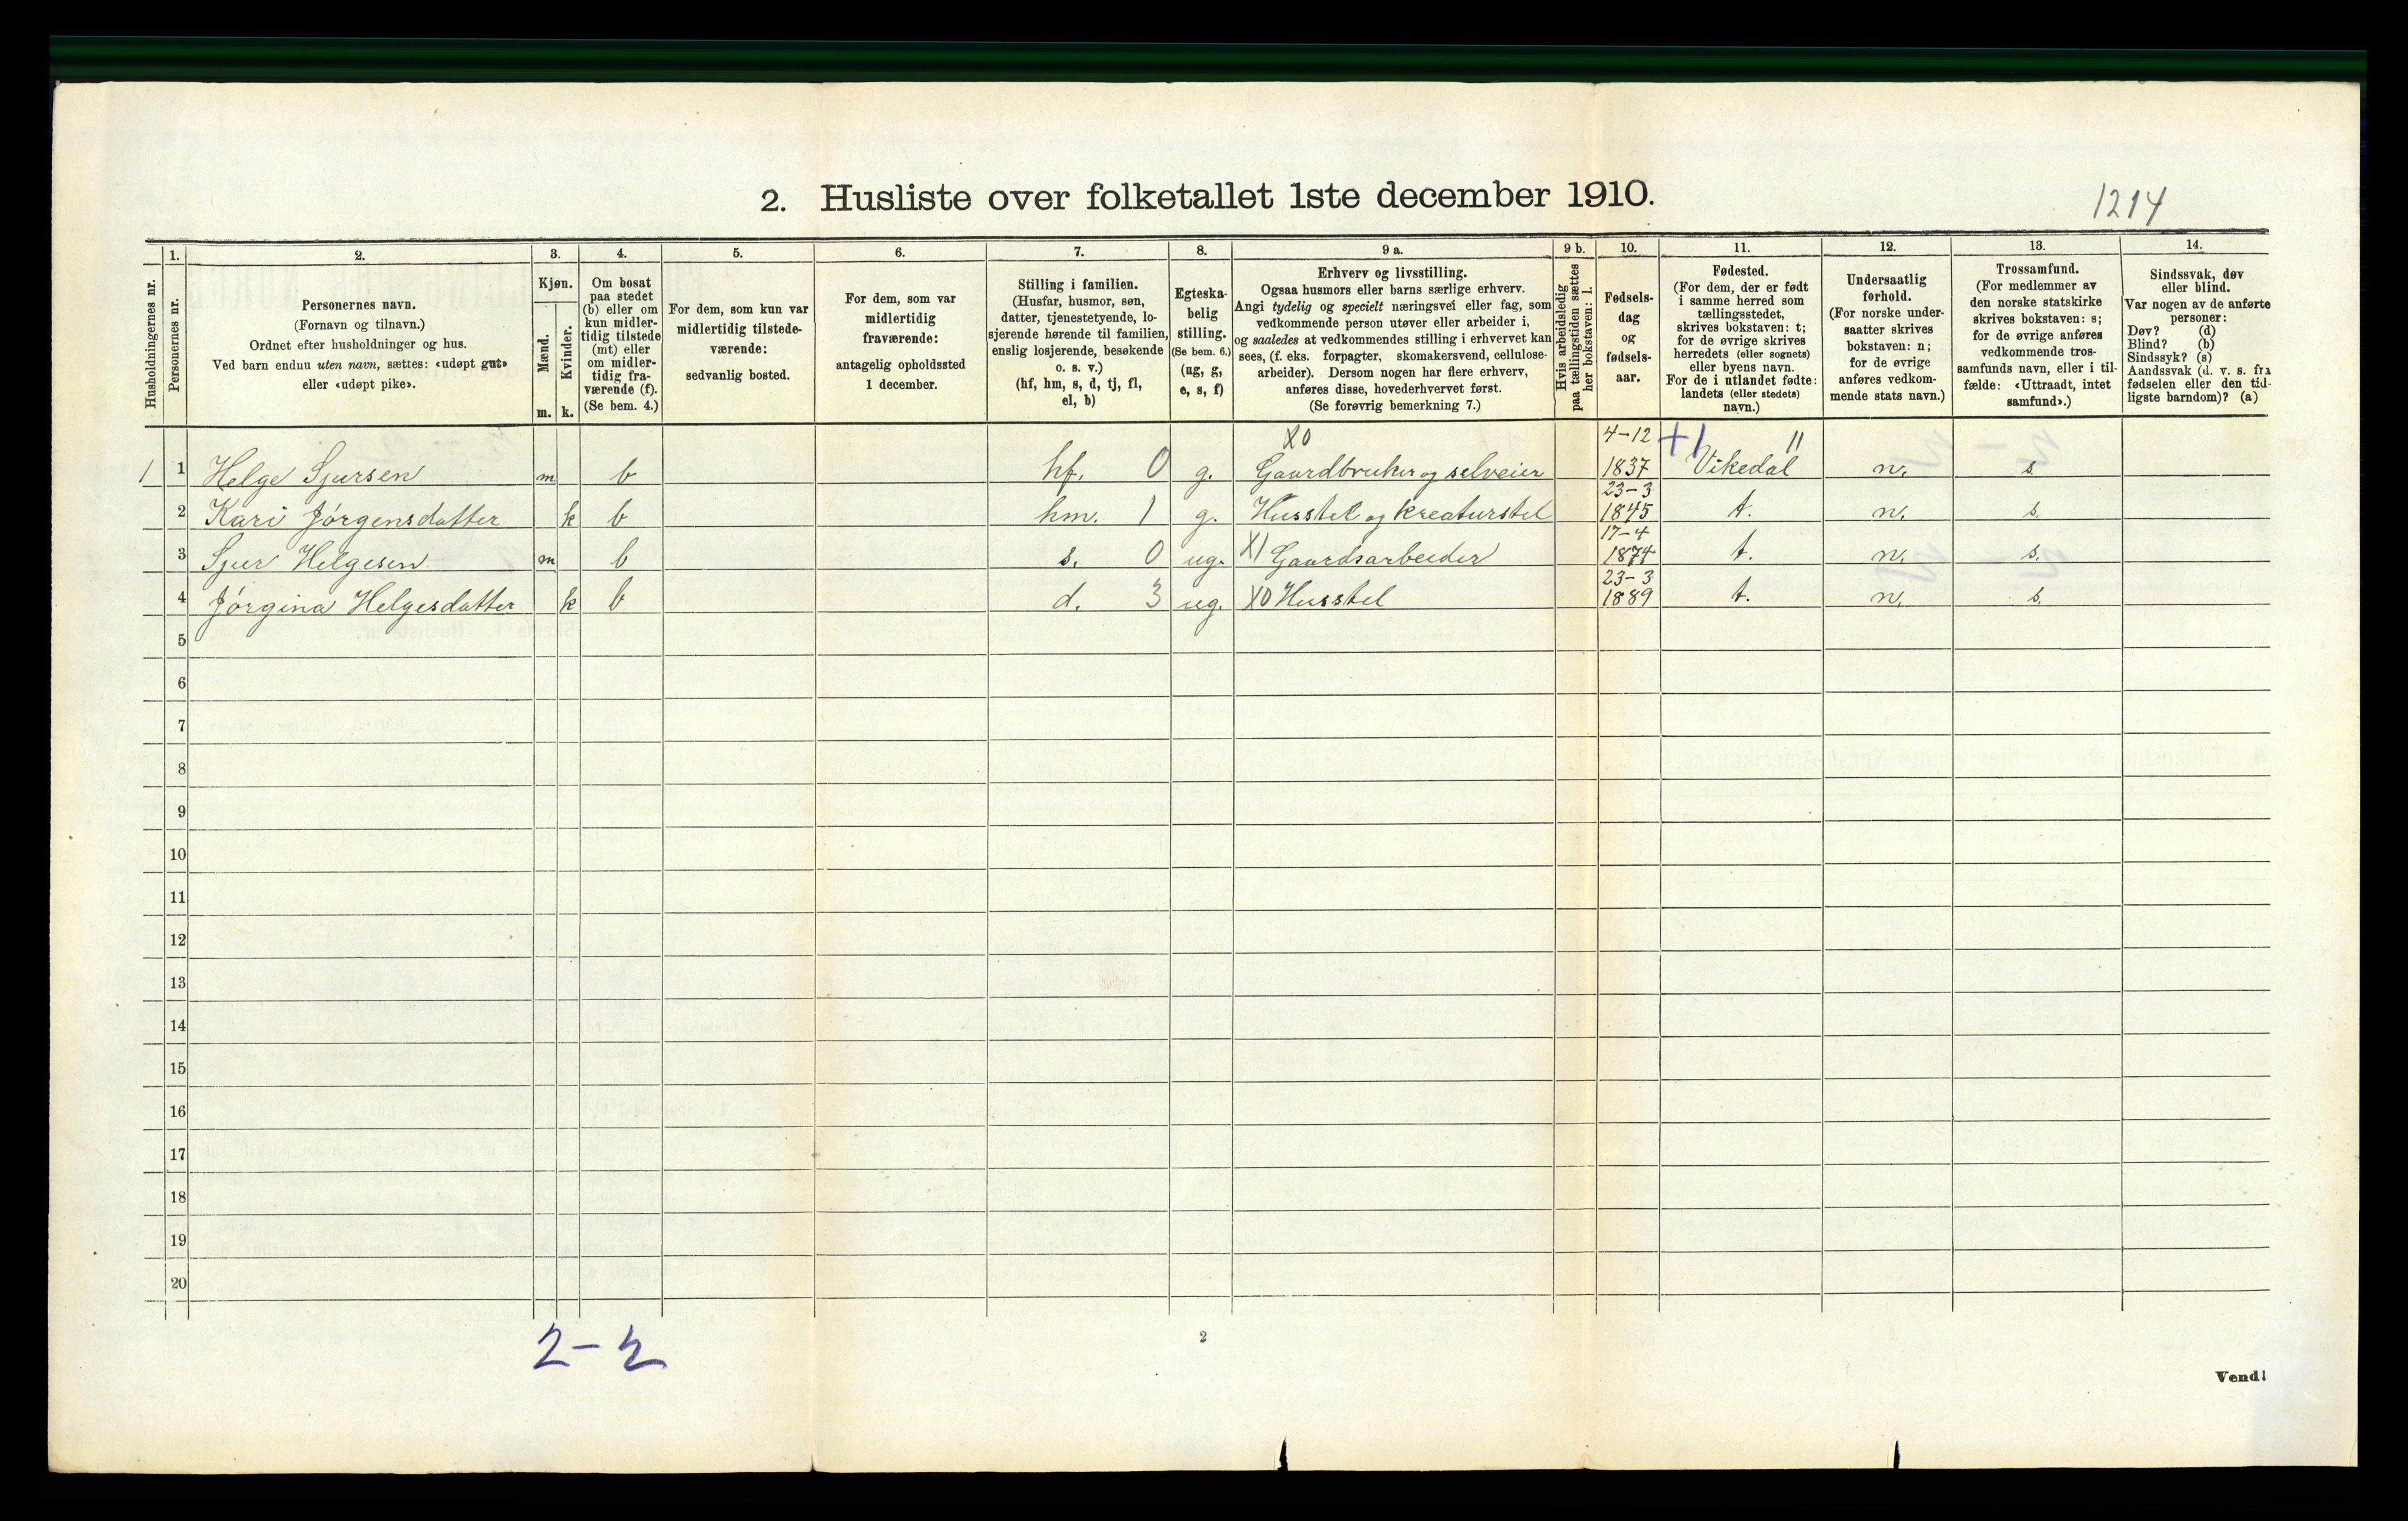 2. Husliste over folketallet 1ste december 1910.
1214
Husholdningernes nr.
1.
Personernes nr.
2.
Personernes navn.
(Fornavn og tilnavn.)
Ordnet efter husholdninger og hus.
Ved barn endnu uten navn, sættes: «udøpt gut»
eller «udøpt pike».
3.
Kjøn.
Mænd.
Kvinder.
m. k.
4.
Om bosat
paa stedet
(b) eller om
kun midler-
tidig tilstede
(mt) eller
om midler-
tidig fra-
værende (f).
(Se bem. 4.)
5.
For dem, som kun var
midlertidig tilstede-
værende:
sedvanlig bosted.
6.
For dem, som var
midlertidig
fraværende:
antagelig opholdssted
1 december.
7.
Stilling i familien.
(Husfar, husmor, søn,
datter, tjenestetyende, lo-
sjerende hørende til familien,
enslig losjerende, besøkende
o. s. v.)
(hf, hm, s, d, tj, fl,
el, b)
8.
Egteska-
belig
stilling.
(Se bem. 6.)
(ug, g,
e, s, f)
9 a.
Erhverv og livsstilling.
Ogsaa husmors eller barns særlige erhverv.
Angi tydelig og specielt næringsvei eller fag, som
vedkommende person utøver eller arbeider i,
og saaledes at vedkommendes stilling i erhvervet kan
sees, (f. eks. forpagter, skomakersvend, cellulose-
arbeider). Dersom nogen har flere erhverv,
anføres disse, hovederhvervet først.
(Se forøvrig bemerkning 7.)
9 b.
Hvis arbeidsledig
paa tællingstiden sættes
her bokstaven: l.
10.
Fødsels-
dag
og
fødsels-
aar.
11.
Fødested.
(For dem, der er født
i samme herred som
tællingsstedet,
skrives bokstaven: t;
for de øvrige skrives
herredets (eller sognets)
eller byens navn.
For de i utlandet fødte:
landets (eller stedets)
navn.)
12.
Undersaatlig
forhold.
(For norske under-
saatter skrives
bokstaven: n;
for de øvrige
anføres vedkom-
mende stats navn.)
13.
Trossamfund.
(For medlemmer av
den norske statskirke
skrives bokstaven: s;
for de øvrige anføres
vedkommende tros-
samfunds navn, eller i til-
fælde: «Uttraadt, intet
samfund».)
14.
Sindssvak, døv
eller blind.
Var nogen av de anførte
personer:
Døv? (d)
Blind? (b)
Sindssyk? (s)
Aandssvak (d. v. s. fra
fødselen eller den tid-
ligste barndom)? (a)
X0 4-12 +1 11
1 1 Helge Sjursen m b hf. 0 g. Gaardbruker og selveier 1837 Vikedal n. s.
23-3
2 Kari Jörgensdatter k b hm. 1 g. Husstel og kreaturstel 1845 t. n. s.
17-4
3 Sjur Helgesen m b s. 0 ug. X1 Gaardsarbeider 1874 t. n. s.
23-3
4 Jörgina Helgesdatter k b d. 3 ug. X0 Husstel 1889 t. n. s.
5
6
7
8
9
10
11
12
13
14
15
16
17
18
19
20
2-2
2
Vend!